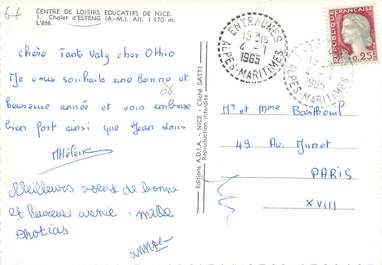 64
CENTRE DE LOISIRS EDUCATIFS DE NICE.
1. Chalet d'ESTENG (A.-M.). Alt. 1 170 m.
L'été.
Chère Tante Valy cher Othio
Je vous souhaite une bonne et
heureuse année et vous embrasse
bien fort ainsi que Jean Louis
08
MHélène
Meilleurs voeux de bonne
et heureuse année : mille
Photias
Editions A.D.I.A. - NICE - Cliché GATTI
Reproduction interdite
ENTRAUNES
15 H15
4 - 1
1965
ALPES-MARITIMES
15 H15
4 - 1
1965
ALPES-MARITIMES
0,25
Mr et Mme
49 Av Junot
PARIS
XVIII